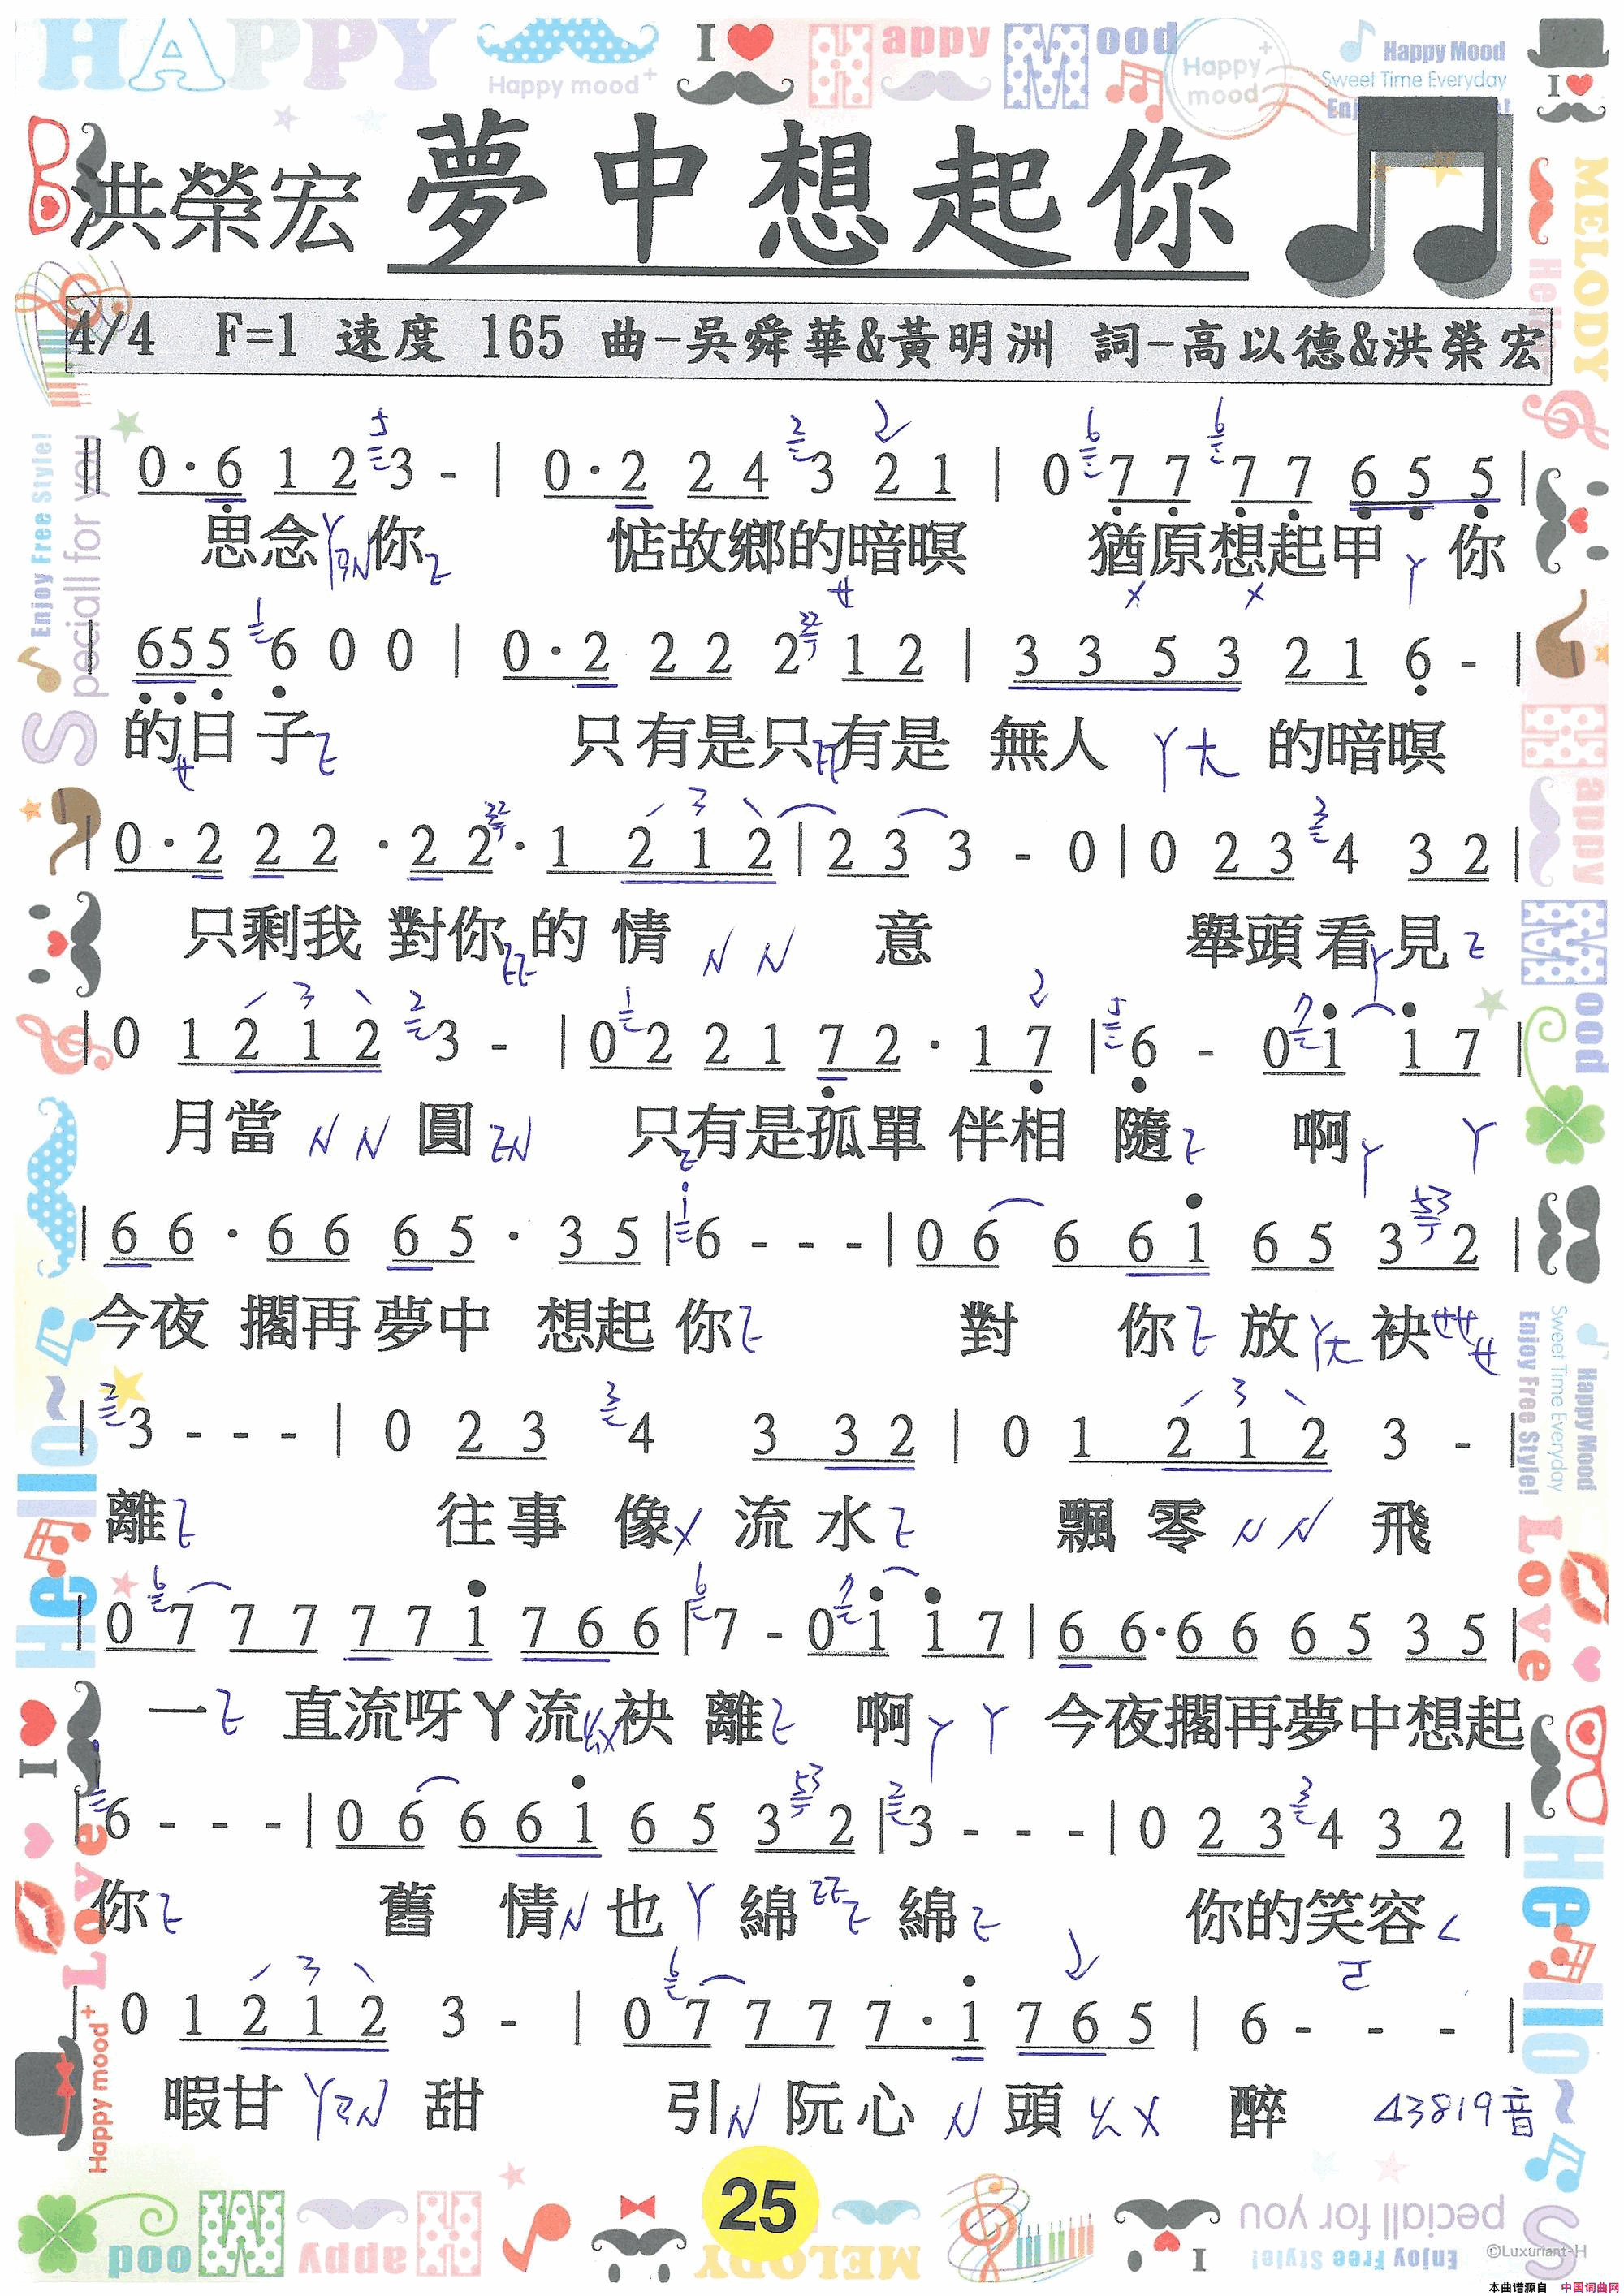 HAPPY Happy mood+ I Happy Mood Happy mood Happy Mood
Sweet Time Everyday
洪榮宏 夢中想起你
4/4 F=1 速度 165 曲-吳舜華&黃明洲 詞-高以德&洪榮宏
0·6 1 2 3 - | 0·2 2 4 3 2 1 | 0 7 7 7 7 6 5 5 |
思念 你 惦故鄉的暗暝 猶原想起甲 你
655 6 0 0 | 0·2 2 2 2 1 2 | 3 3 5 3 2 1 6 - |
的日子 只有是只有是 無人 的暗暝
0·2 2 2 ·2 2· 1 2 1 2 | 2 3 3 - 0 | 0 2 3 4 3 2 |
只剩我 對你 的 情 意 舉頭看見
0 1 2 1 2 3 - | 0 2 2 1 7 2· 1 7 | 6 - 0 1 1 7 |
月當 圓 只有是孤單 伴相 隨 啊
6 6· 6 6 6 5· 3 5 | 6 - - - | 0 6 6 6 1 6 5 3 2 |
今夜 擱再夢中 想起 你 對 你 放 袂
3 - - - | 0 2 3 4 3 3 2 | 0 1 2 1 2 3 - |
離 往事 像 流 水 飄 零 飛
0 7 7 7 7 7 1 7 6 6 | 7 - 0 1 1 7 | 6 6·6 6 6 5 3 5 |
一 直流呀ㄚ流 袂 離 啊 今夜擱再夢中想起
6 - - - | 0 6 6 6 1 6 5 3 2 | 3 - - - | 0 2 3 4 3 2 |
你 舊 情 也 綿 綿 你的笑容
0 1 2 1 2 3 - | 0 7 7 7 7· 1 7 6 5 | 6 - - - |
暇甘 甜 引 阮心 頭 醉 43819音
25
©Luxuriant-H
本曲谱源自 中国词曲网